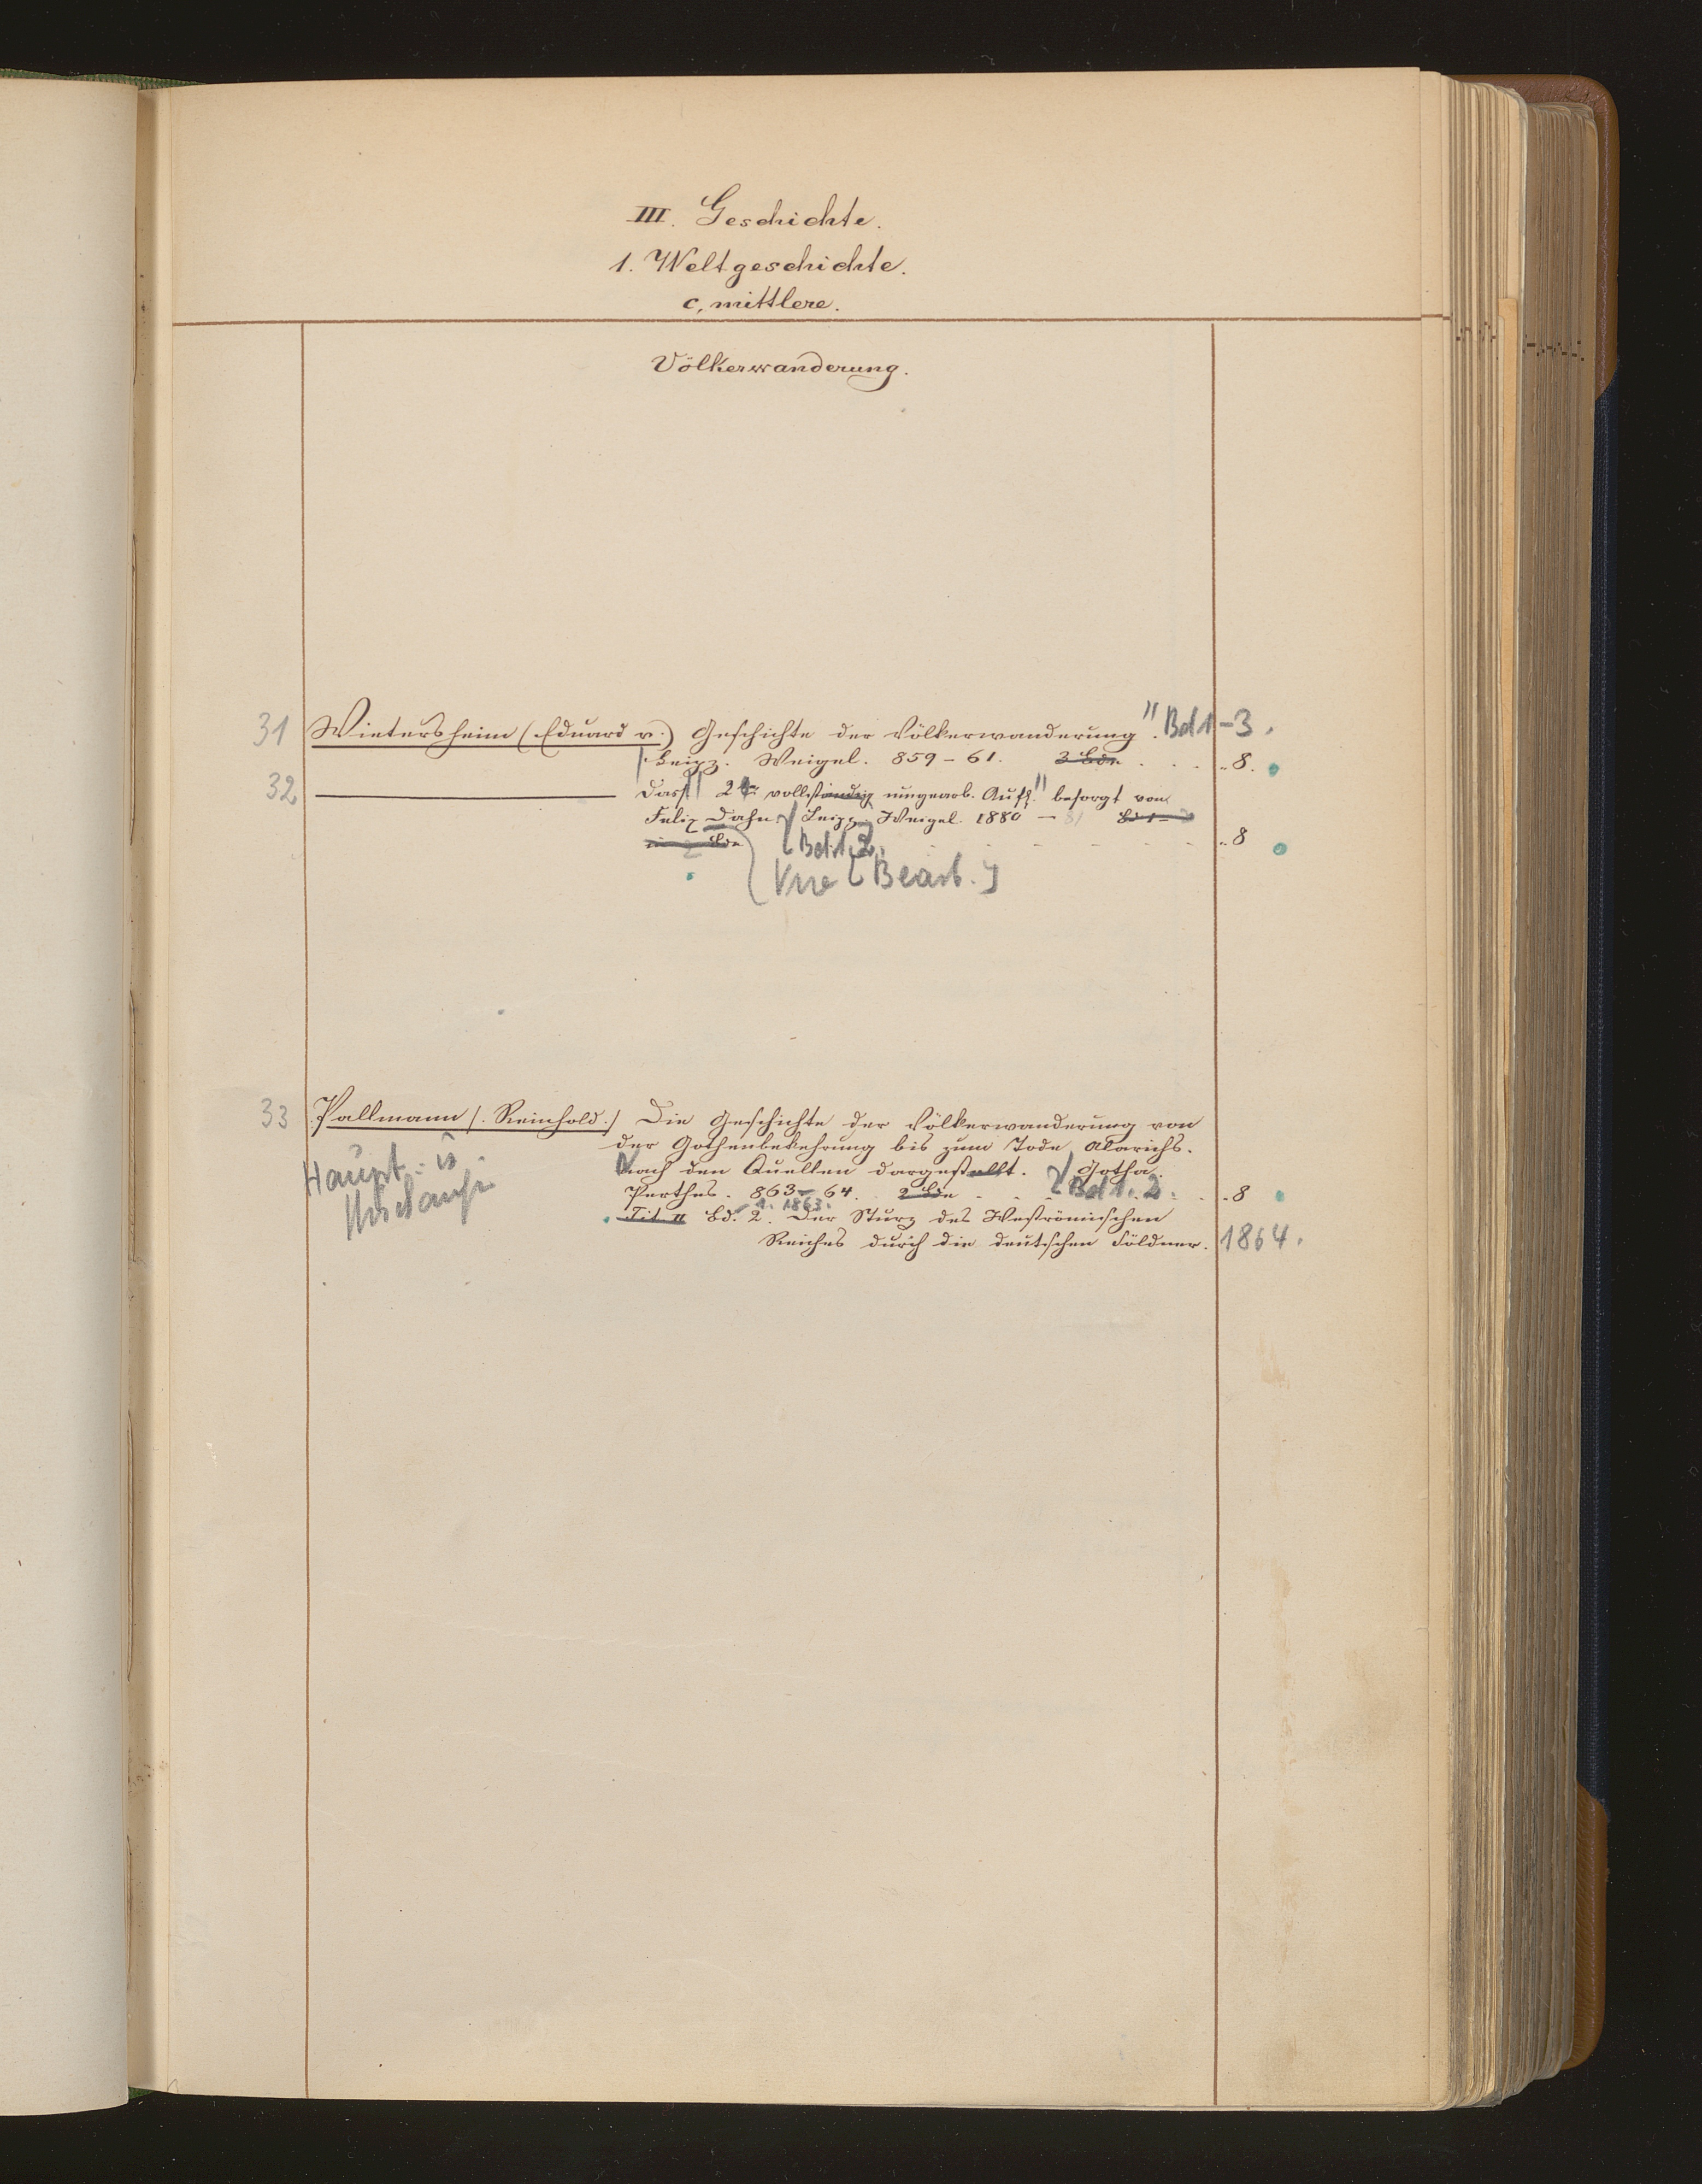 III. Geschichte.
1. Weltgeschichte.
c, mittlere.
Völkerwanderung.
31 Wietersheim (Eduard v.) Geschichte der Völkerwanderung." Bd 1-3.
Leipz. Weigel. 859-61. 3 Bde . . . . 8.
32 Dass" 2te vollständig umgearb. Aufl." besorgt von
Felix Dahn. Leipz. Weigel. 1880 - 81 Bd 1-
in 2 Bde [Bd. 1.2. . . . . . 8
[Bearb.]
33 Pallmann /. Reinhold./ Die Geschichte der Völkerwanderung von
der Gothenbekehrung bis zum Tode Alarichs.
Haupt- u. Nach den Quellen dargestellt. Gotha.
Perthes. 863-64. 2 Bde . . [Bd 1. 2. . . 8
1. 1863.
Tit. II Bd. 2. Der Sturz des Weströmischen
Reiches durch die deutschen Söldner. 1864.